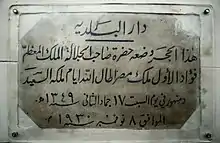 دار البلدية
هذا الحجر وضعه حضرة صاحب الجلالة الملك المعظم
فؤاد الأول ملك مصر أطال الله أيام ملكه السعيد
دمنهور في يوم السبت ١٧ جماد الثاني ١٣٤٩ هـ
الموافق ٨ نوفمبر ١٩٣٠ م